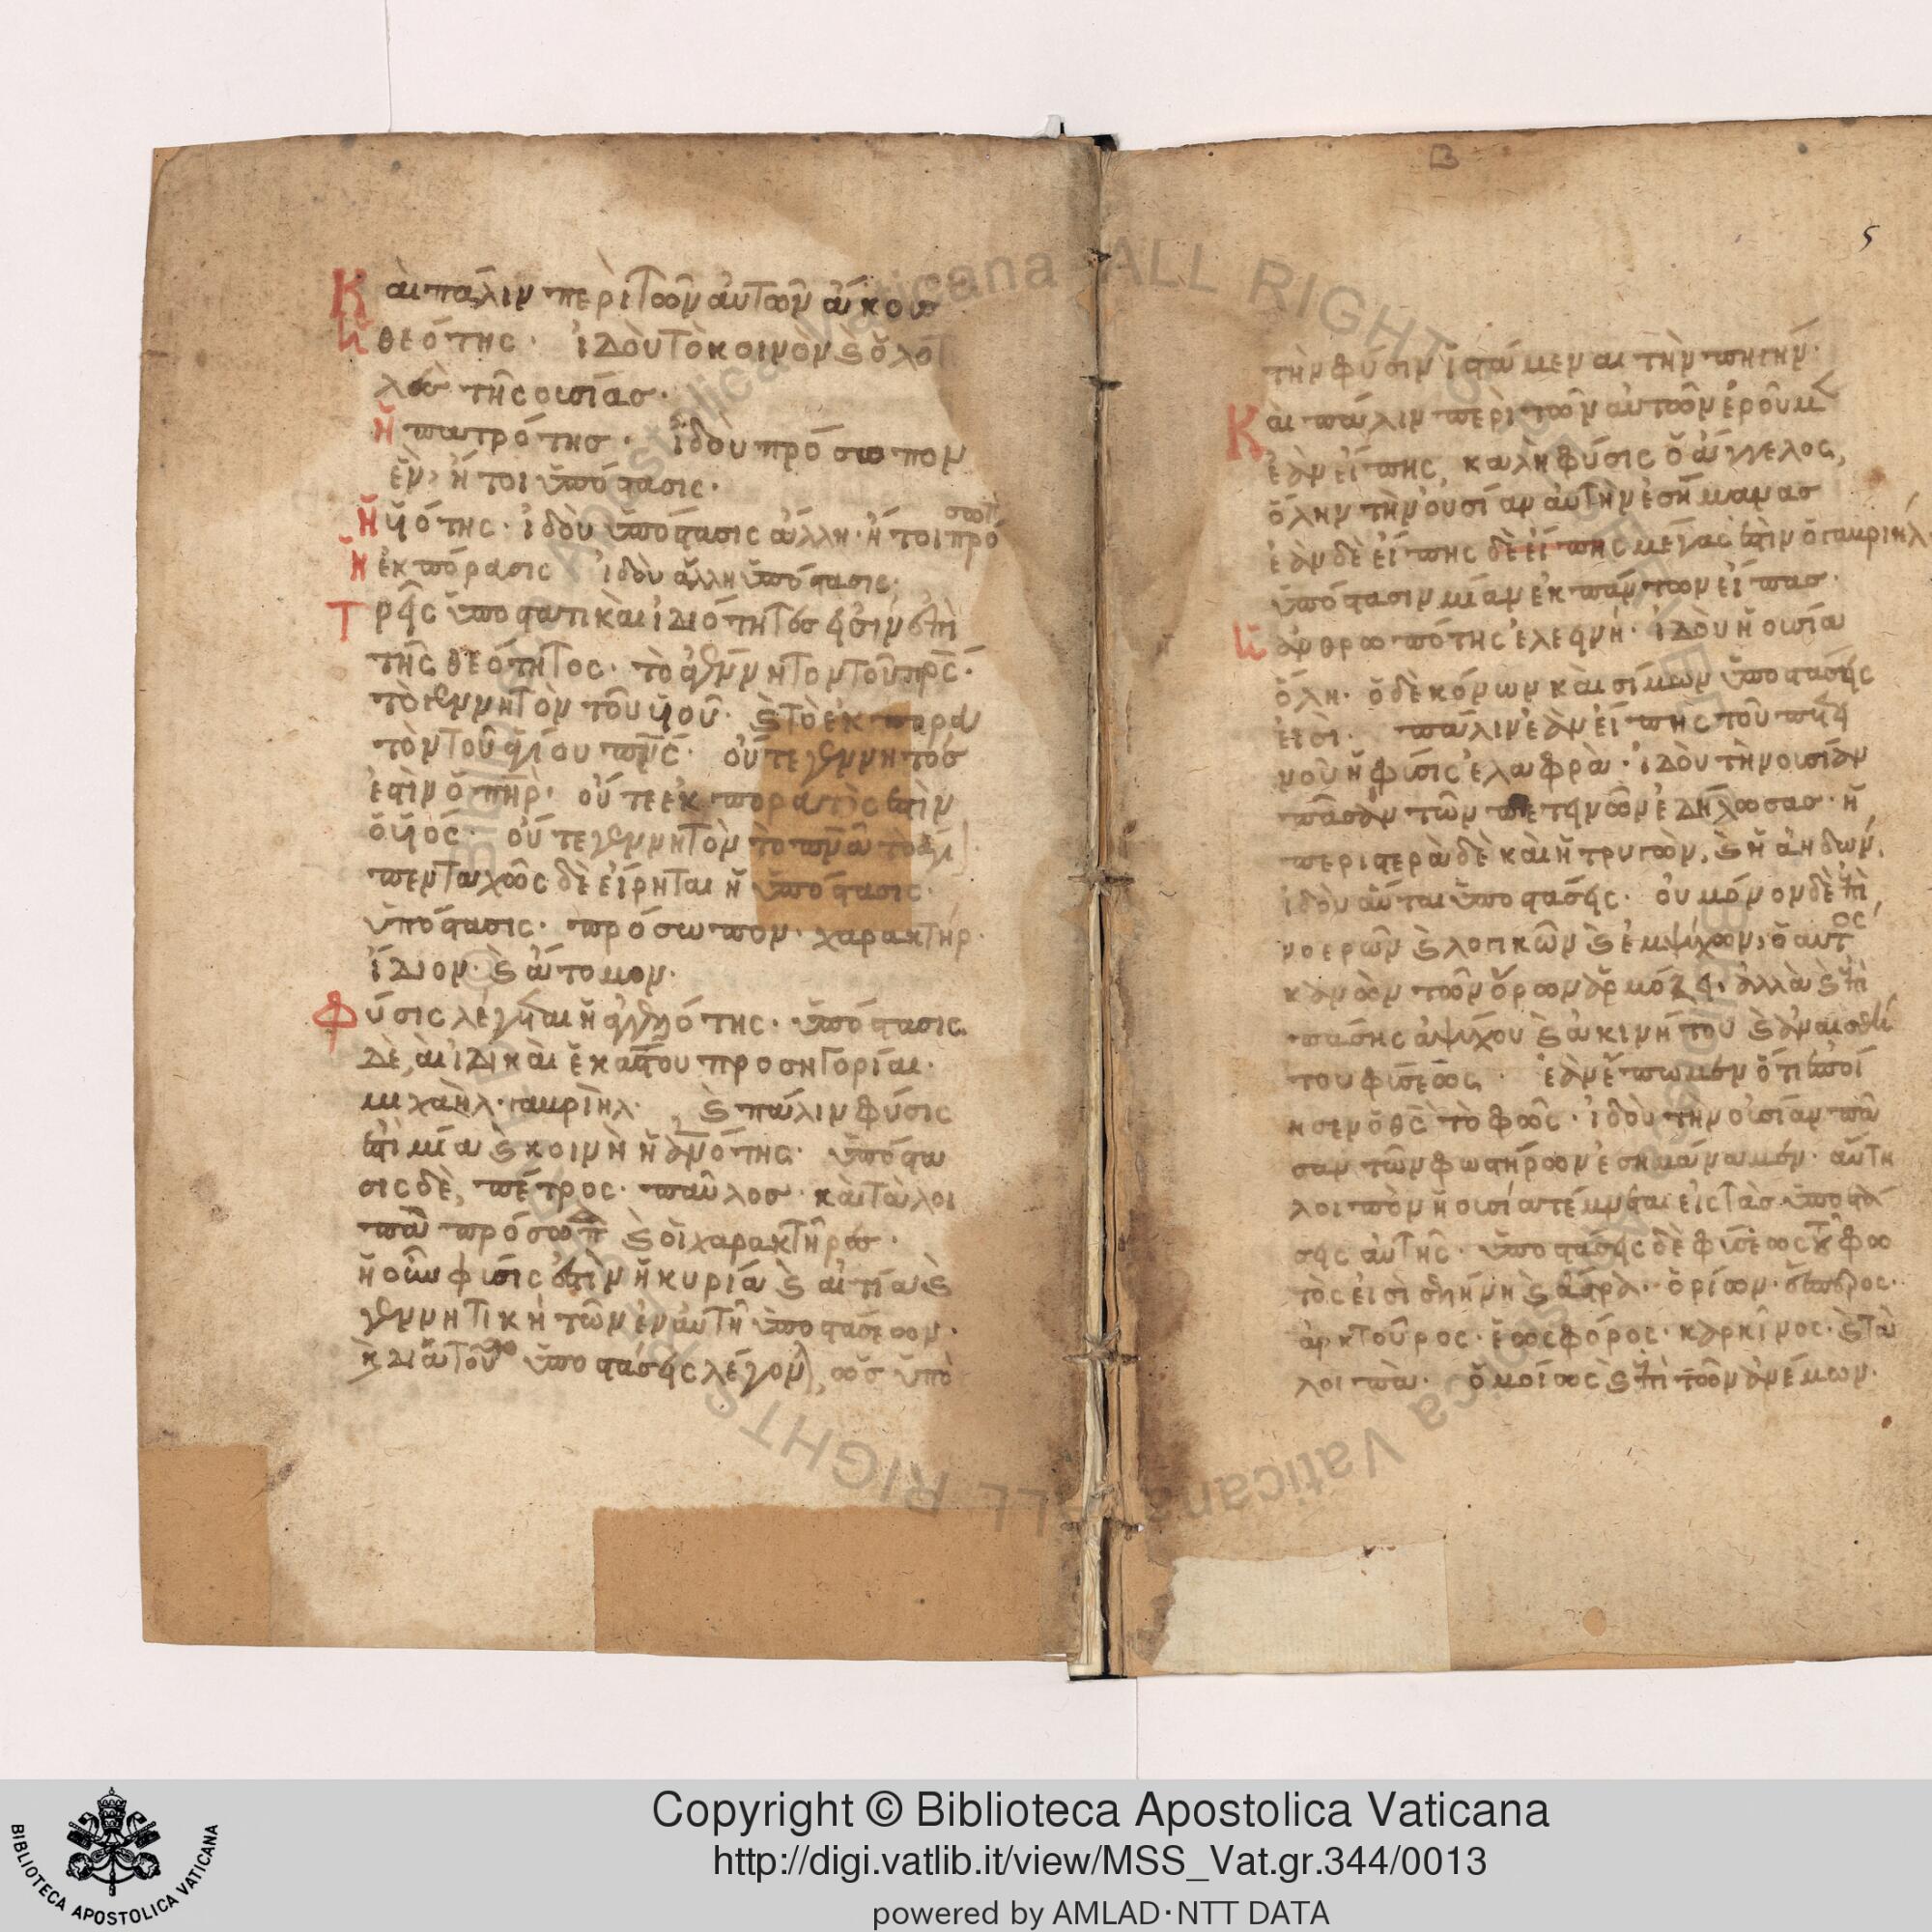 Καὶ πάλιν περὶ τῶν αὐτῶν ἄκουε
ἡ θεότης· ἰδοὺ τὸ κοινὸν ϗ ὅλον
τῆς οὐσίας·
ἡ πατρότης· ἰδοὺ πρόσωπον
ἓν, ἤτοι ὑπόστασις·
ἡ υἱότης· ἰδοὺ ὑπόστασις ἄλλη· ἤτοι πρόσωπ
ἡ ἐκπόρευσις ἰδοὺ ἄλλη ὑπόστασις·
Τρεῖς ὑποστατικαὶ ἰδιότητες εἰσὶν ἐπὶ
τῆς θεότητος· τὸ ἀγέννητον τοῦ πρς·
τὸ γεννητὸν τοῦ υἱοῦ· ϗ τὸ ἐκπορευ
τὸν τοῦ ἁγίου πνς· οὔτε γεννητὸς
ἐστὶν ὁ πηρ· οὔτε ἐκπορευτὸς ἐστὶν
ὁ υἱός· οὔτε γεννητὸν τὸ πνα τὸ ἅγι
πενταχῶς δὲ εἴρηται ἡ ὑπόστασις·
ὑπόστασις· πρόσωπον· χαρακτήρ·
ἴδιον· ϗ ἄτομον·
Φύσις λέγεται ἡ ἀγγελότης· ὑπόστασις
δὲ, αἱ ἰδικαὶ ἑκάστου προσηγορίαι·
μιχαὴλ· γαβριὴλ· ϗ πάλιν φύσις
ἐστὶ μία ϗ κοινὴ ἡ ανότης· ὑπόστα
σις δὲ, πέτρος· παῦλος· καὶ τὰ λοι
πὰ πρόσωπ ϗ οἱ χαρακτῆρες·
ἡ οὖν φύσις ἐστὶν ἡ κυρία ϗ αἰτία ϗ
γεννητικὴ τῶν ἐν αὐτῇ ὑποστάσεων·
ϗ διατοῦτο ὑποστάσεις λέγον, ὡς ὑπὸ
Β
5
τὴν φύσιν ἱστάμεναι τὴν πηγήν·
Καὶ πάλιν περὶ τῶν αὐτῶν ἐροῦμ
ἐὰν εἴπης, καλὴ φύσις ὁ ἄγγελος,
ὅλην τὴν οὐσίαν αὐτὴν ἐσήμανας
ἐὰν δὲ εἴπης δὲ εἴπης μέγας ἐστὶν ὁ γαβριήλ
ὑπόστασιν μίαν ἐκ πάντων εἶπας·
ἡ ἀνθρωπότης ἐλεεινή· ἰδοὺ ἡ οὐσία
ὅλη· ὁ δὲ κόνων καὶ σίμων ὑποστάσεις
εἰσὶ· πάλιν ἐὰν εἴπης τοῦ πετει
νοῦ ἡ φύσις ἐλαφρὰ· ἰδοὺ τὴν οὐσίαν
πᾶσαν τῶν πετεινῶν ἐδήλωσας· ἡ
περιστερὰ δὲ καὶ ἡ τρυγὼν, ϗ ἡ ἀηδών,
ἰδοὺ αὗται ὑποστάσεις· οὐ μόνον δὲ ἐπὶ
νοερῶν ϗ λογικῶν ϗ ἐμψύχων, ὁ αὐτὸς
κανὼν τῶν ὅρων ἁρμόζει· ἀλλὰ ϗ ἐπὶ
πάσης ἀψύχου ϗ ἀκινήτου ϗ ἀναισθή
του φύσεως· ἐὰν εἴπωμεν ὅτι ἐποί
ησεν ὁ θς τὸ φῶς· ἰδοὺ τὴν οὐσίαν πᾶ
σαν τῶν φωστήρων ἐσημάναμεν· αὕτη
λοιπὸν ἡ οὐσία τέμνεται εἰς τὰς ὑποστά
σεις αὐτῆς· ὑποστάσεις δὲ φύσεως τοῦ φω
τὸς εἰσὶ σελήνη ϗ ἄστρα· ὁρίων· ἕσπερος·
ἀρκτοῦρος· ἑωσφόρος· καρκῖνος· ϗ τὰ
λοιπὰ· ὁμοίως ϗ ἐπὶ τῶν ἀνέμων·
Copyright © Biblioteca Apostolica Vaticana
http://digi.vatlib.it/view/MSS_Vat.gr.344/0013
powered by AMLAD·NTT DATA
BIBLIOTECA APOSTOLICA VATICANA